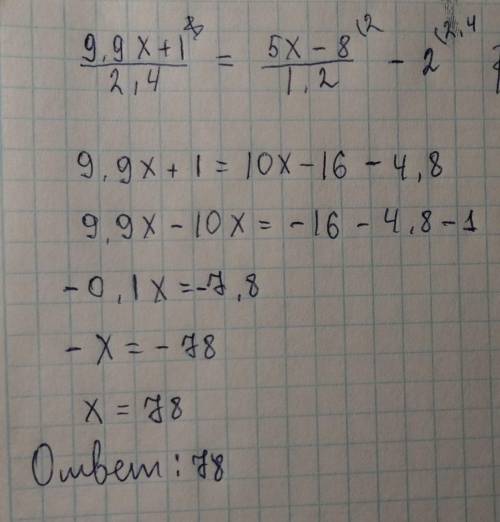 (9,9x+1)/2,4 = (5x-8)/1,2 (2 - 2 (2,4
9,9x+1=10x-16-4,8
9,9x-10x=-16-4,8-1
-0,1x=-7,8
-x=-78
x=78
Ответ: 78